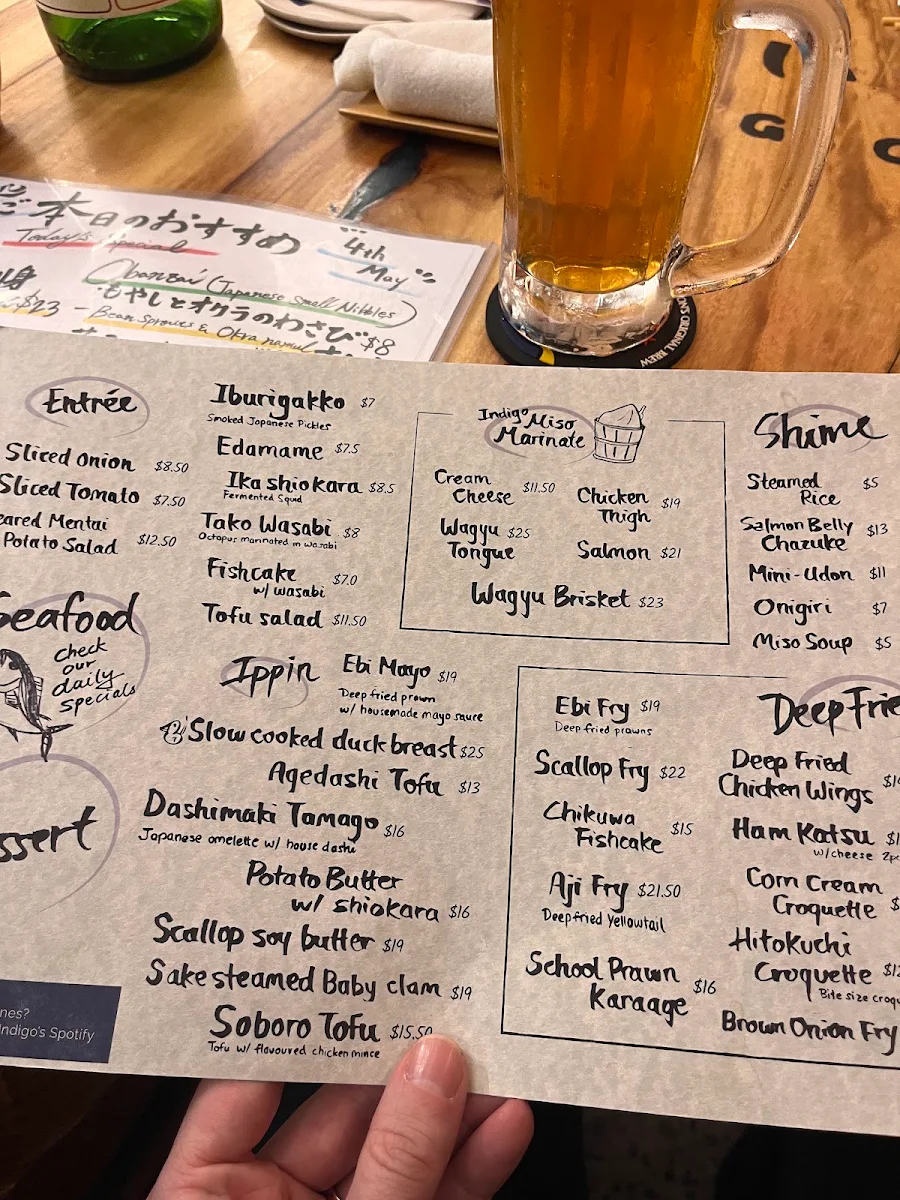 本日のおすすめ
Today's Special
4th
May
$23
Obanzai (Japanese Small Nibbles)
もやしとオクラのわさび
- Bean Sprouts & Okra namul
$8
G
ONS ORIGINAL BREW
Entrée
Sliced Onion $8.50
Sliced Tomato $7.50
eared Mentai
Potato Salad $12.50
Iburigakko $7
Smoked Japanese Pickles
Edamame $7.5
Ika shiokara $8.5
Fermented Squid
Tako Wasabi $8
Octopus marinated in wasabi
Fishcake
w/ wasabi $7.0
Tofu salad $11.50
Seafood
check
our
daily
specials
ssert
nes?
Indigo's Spotify
Ippin
Ebi Mayo $19
Deep fried prawn
w/ housemade mayo sauce
Slow cooked duck breast $25
Agedashi Tofu $13
Dashimaki Tamago $16
Japanese omelette w/ house dashi
Potato Butter
w/ shiokara $16
Scallop soy butter $19
Sake steamed Baby clam $19
Soboro Tofu $15.50
Tofu w/ flavoured chicken mince
Indigo Miso
Marinate
Cream
Cheese $11.50
Wagyu
Tongue $25
Chicken
Thigh $19
Salmon $21
Wagyu Brisket $23
Shime
Steamed
Rice $5
Salmon Belly
Chazuke $13
Mini-Udon $11
Onigiri $7
Miso Soup $5
Deep Frie
Ebi Fry $19
Deep fried prawns
Scallop Fry $22
Chikuwa
Fishcake $15
Aji Fry $21.50
Deepfried Yellowtail
School Prawn
Karaage $16
Deep Fried
Chicken Wings
Ham Katsu
w/cheese
Corn Cream
Croquette $
Hitokuchi
Croquette
Bite size croqu
Brown Onion Fry